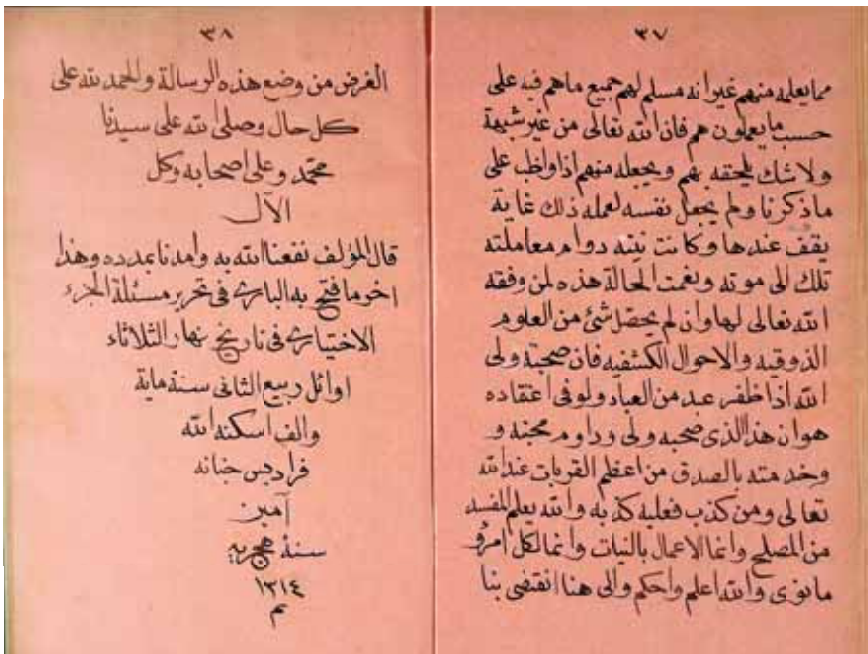 ٣٧
مما يعلمه منهم غير انه مسلم لهم جميع ماهم فيه على
حسب ما يعملون هم فان الله تعالى من غير شبهة
ولا شك يلحقه بهم ويجعله منهم اذا واظب على
ما ذكرنا ولم يجعل نفسه لعمله ذلك غاية
يقف عندها وكانت نيته دوام معاملته
تلك الى موته ونعمت الحالة هذه لمن وفقه
الله تعالى لها وان لم يحصل شئ من العلوم
الذوقيه والاحوال الكشفيه فان صحبة ولى
الله اذا ظفر عبد من العباد ولو فى اعتقاده
هوان هذا الذى صحبه ولى وداوم محبته و
وخدمته بالصدق من اعظم القربات عند الله
تعالى ومن كذب فعليه كذبه والله يعلم المفسد
من المصلح وانما الاعمال بالنيات وانما لكل امرؤ
ما نوى والله اعلم واحكم والى هنا انقضى بنا
٣٨
الغرض من وضع هذه الرسالة والحمد لله على
كل حال وصلى الله على سيدنا
محمد وعلى اصحابه وكل
الآل
قال المؤلف نفعنا الله به وامدنا بمدده وهذا
اخر ما فتح به البارى فى تحرير مسئلة الجزء
الاختيارى فى تاريخ نهار الثلاثاء
اوائل ربيع الثانى سنة ماية
والف اسكنه الله
فراديس جنانه
آمين
سنة هجريه
١٣١٤
م